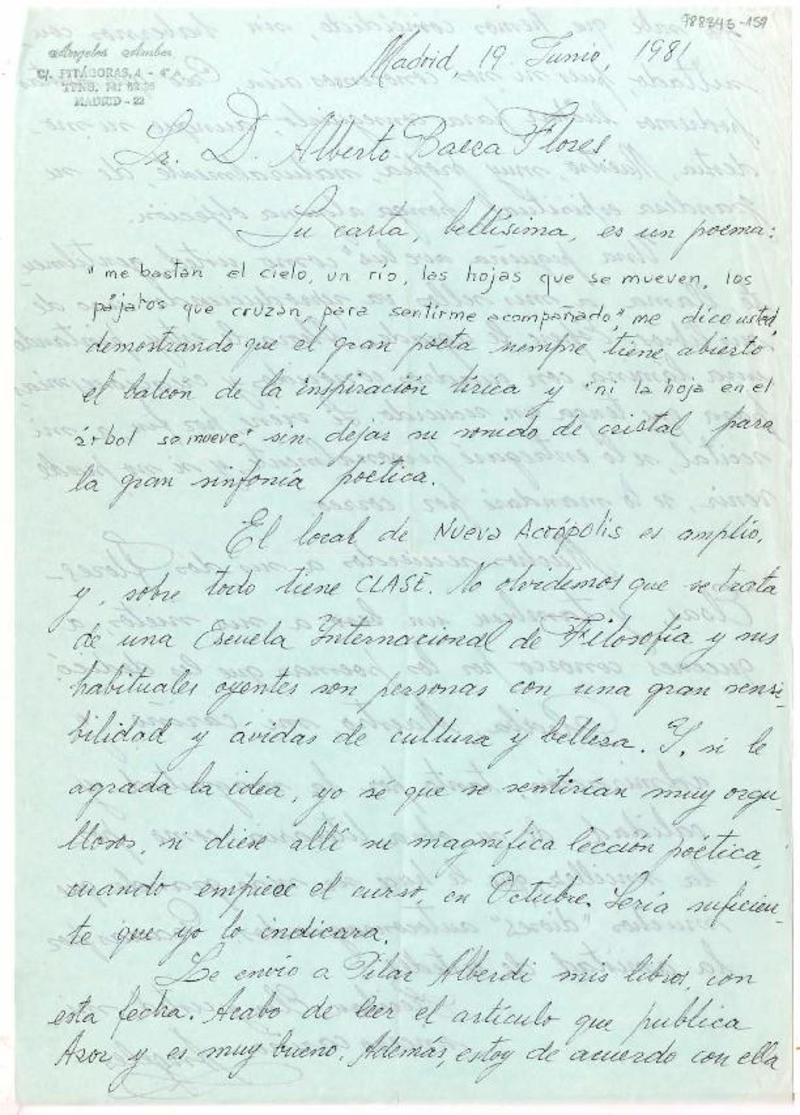 988345-159
Angeles Amber
C/. PITÁGORAS, 4 - 4º
MADRID - 22
Madrid, 19 Junio, 1981
Sr. D. Alberto Baeza Flores
Su carta, bellísima, es un poema:
"me bastan el cielo, un río, las hojas que se mueven, los
pájaros que cruzan, para sentirme acompañado", me dice usted,
demostrando que el gran poeta siempre tiene abierto
el balcon de la inspiración lírica y "ni la hoja en el
árbol se mueve" sin dejar su sonido de cristal para
la gran sinfonía poética.
El local de Nueva Acrópolis es amplio,
y, sobre todo tiene CLASE. No olvidemos que se trata
de una Escuela Internacional de Filosofía y sus
habituales oyentes son personas con una gran sensi-
bilidad y ávidas de cultura y belleza. Y, si le
agrada la idea, yo sé que se sentirían muy orgu-
llosos, si diese allí su magnífica lección poética,
cuando empiece el curso, en Octubre. Sería suficien-
te que yo lo indicara.
Le envío a Pilar Alberdi mis libros, con
esta fecha. Acabo de leer el artículo que publica
Azor y es muy bueno. Además, estoy de acuerdo con ella